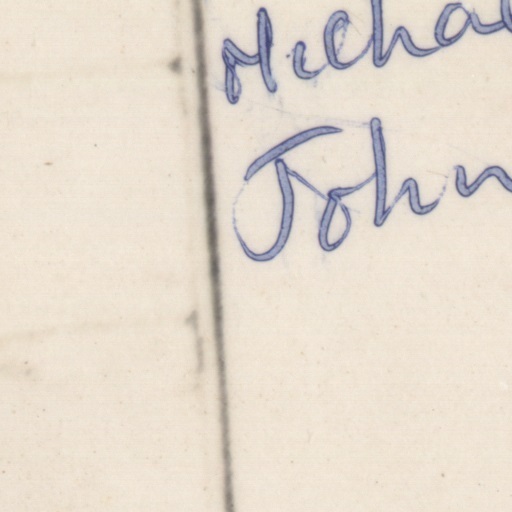 Micha
John